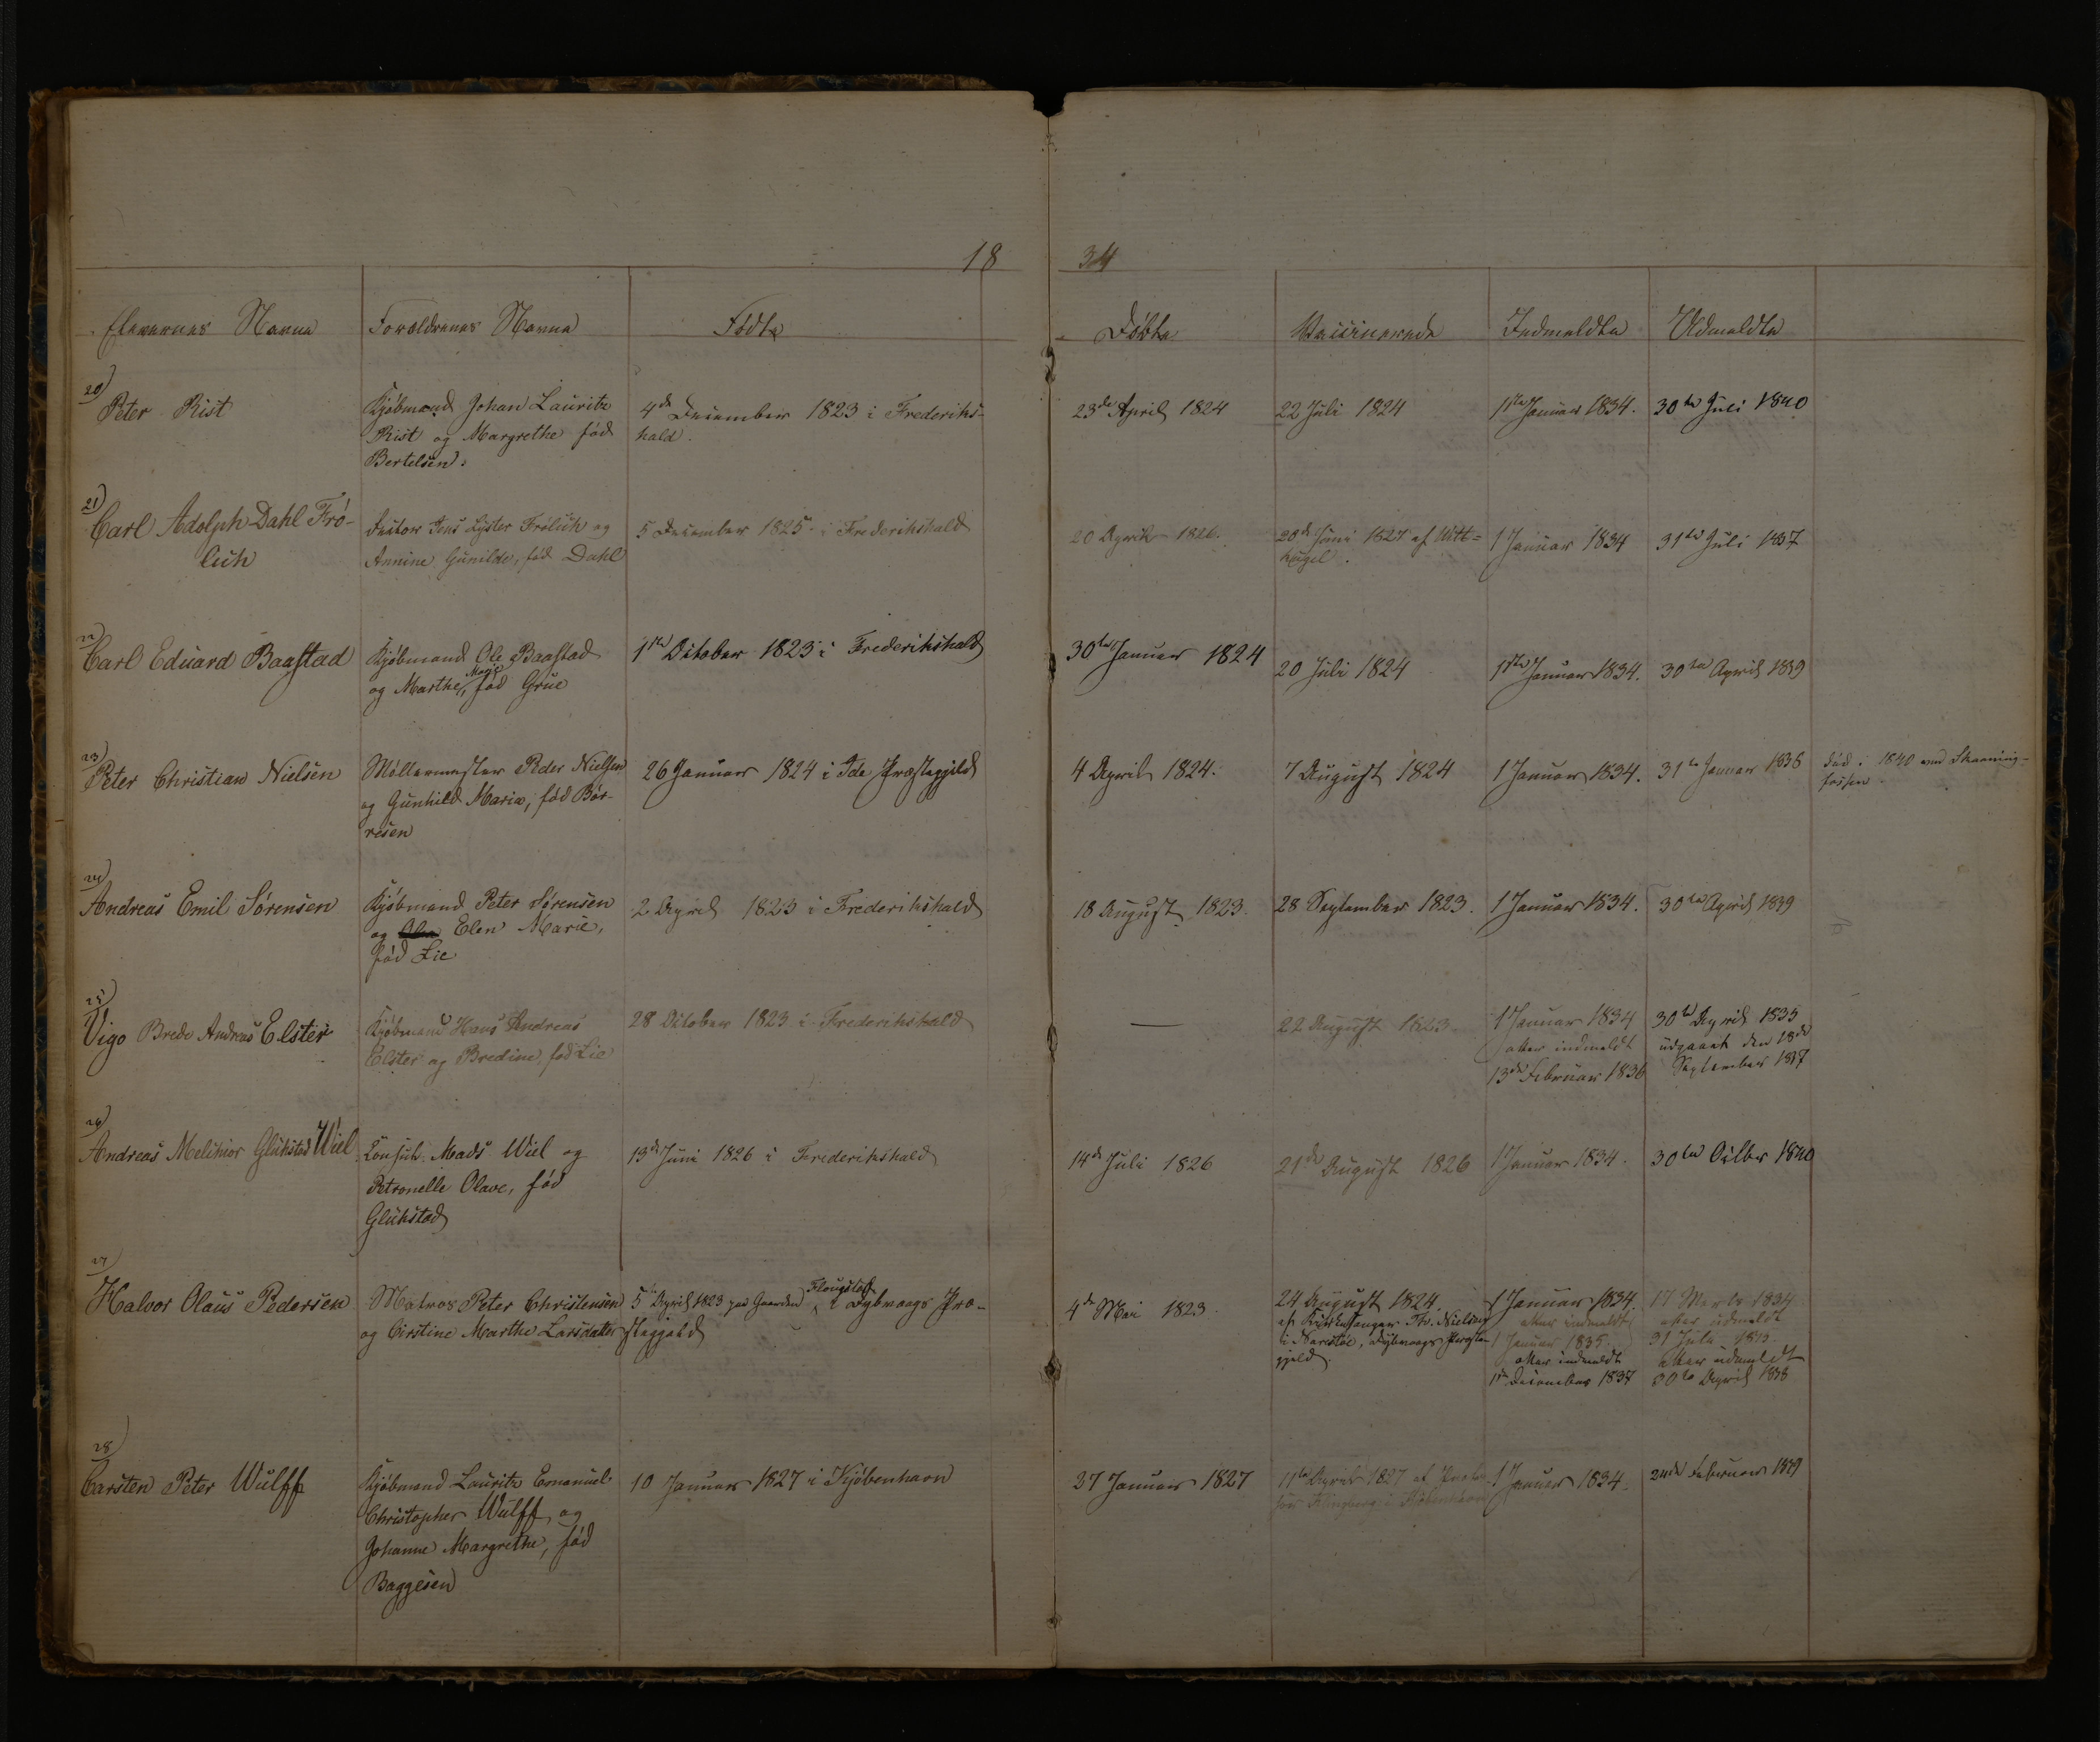 18 34
Elevernes Navne Forældrenes Navne Fødte Døbte Vaccinerede Indmeldte Udmeldte
20) Peter Rist
Kjöbmand Johan Lauritz
Rist og Margrethe född
Bertelsen.
4de December 1823 i Frederiks-
hald.
23de April 1824
22 Juli 1824
1ste Januar 1834.
30te Juli 1840
21) Carl Adolph Dahl Frö-
lich
Jens Lyster Frölich og
Annine Gunilde, född Dahl
5 December 1825 i Frederikshald
20 April 1826.
20de Juni 1827 af Witt-
kugel.
1 Januar 1834
31te Juli 1837
22) Carl Eduard Baastad
Kjöbmand Ole Baastad
og Marthe Marie, född Grue
1ste October 1823 i Frederikshald
30te Januar 1824
20 Juli 1824
1ste Januar 1834.
30te April 1839
23) Peter Christian Nielsen
Möllermester Peder Nielsen
og Gunhild Maria, född Bör-
resen
26 Januar 1824 i Ide Præstegjeld
4 April 1824.
7 August 1824
1 Januar 1834.
31te Januar 1836
död i 1840 ved Skanning-
fossen.
24) Andreas Emil Sörensen
Kjöbmand Peter Sörensen
og Elen Marie,
född Lie
2 April 1823 i Frederikshald
18 August 1823.
28 September 1823.
1 Januar 1834.
30te April 1839
25) Vigo Brede Andreas Elster
Kjöbmand Hans Andreas
Elster og Bredine, född Lie
28 October 1823 i Frederikshald
—
22 August 1823.
1 Januar 1834
atter indmeldt
13de Februar 1836
30te April 1835
udgaaet den 18de
September 1837
26) Andreas Melchior Glükstad Wiel
Consul Mads Wiel og
Petronelle Olave, född
Glükstad
13de Juni 1826 i Frederikshald
14de Juli 1826
21de August 1826
1 Januar 1834.
30te Octbr 1840
27) Halvor Olaus Pedersen
Matros Peter Christensen
og Cirstine Marthe Larsdatter
5te April 1823 paa Gaarden Flougstad i Dybvaags Præ-
stegjeld
4de Mai 1823.
24 August 1824.
af Kirkesanger Th. Nielsen
i Narestöe, Dybvaags Præste-
gjeld.
1 Januar 1834.
atter indmeldt
1 Januar 1835.
atter indmeldt
1ste December 1837
17 1834
atter udmeldt
31 Juli
atter udmeldt
30te April 1838
28) Carsten Peter Wulff
Kjöbmand Lauritz Emanuel
Christopher Wulff og
Johanne Margrethe, född
Baggesen
10 Januar 1827 i Kjöbenhavn
27 Januar 1827
11te April 1827 af Profes-
sor Klingberg i Kjöbenhavn
1 Januar 1834.
Februar 1839